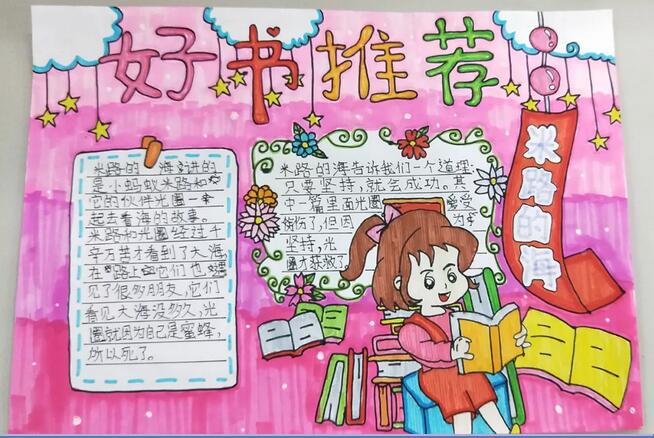 好书推荐
米路的海
米路的海讲的
是小蚂蚁米路和
它的伙伴光圈一
起去看海的故事。
米路和光圈经过千
辛万苦才看到了大海,
在路上它们也遇
见了很多朋友,它们
看见大海没多久,光
圈就因为自己是蜜蜂,
所以死了。
米路的海告诉我们一个道理:
只要坚持,就会成功。其
中一篇里面光圈
受伤了,但因为
坚持,光
圈才获救了